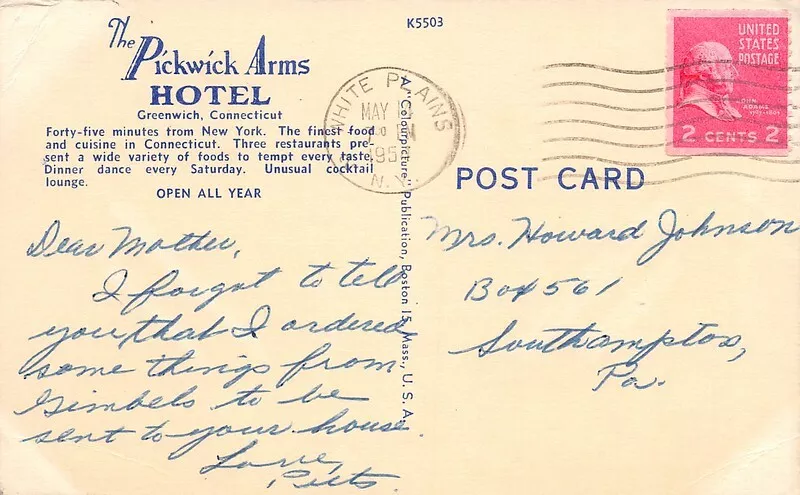 K5503
The
Pickwick Arms
HOTEL
Greenwich, Connecticut
Forty-five minutes from New York. The finest food
and cuisine in Connecticut. Three restaurants pre-
sent a wide variety of foods to tempt every taste.
Dinner dance every Saturday. Unusual cocktail
lounge.
OPEN ALL YEAR
Dear Mother,
I forgot to tell
you that I ordered
some things from
Gimbels to be
sent to your house.
Love,
A "Colourpicture" Publication, Boston 15, Mass., U. S. A.
WHITE PLAINS
MAY
N.Y.
UNITED
STATES
POSTAGE
JOHN
ADAMS
1797-1801
2 CENTS 2
POST CARD
Mrs. Howard Johnson
Box 561
Southampton,
Pa.